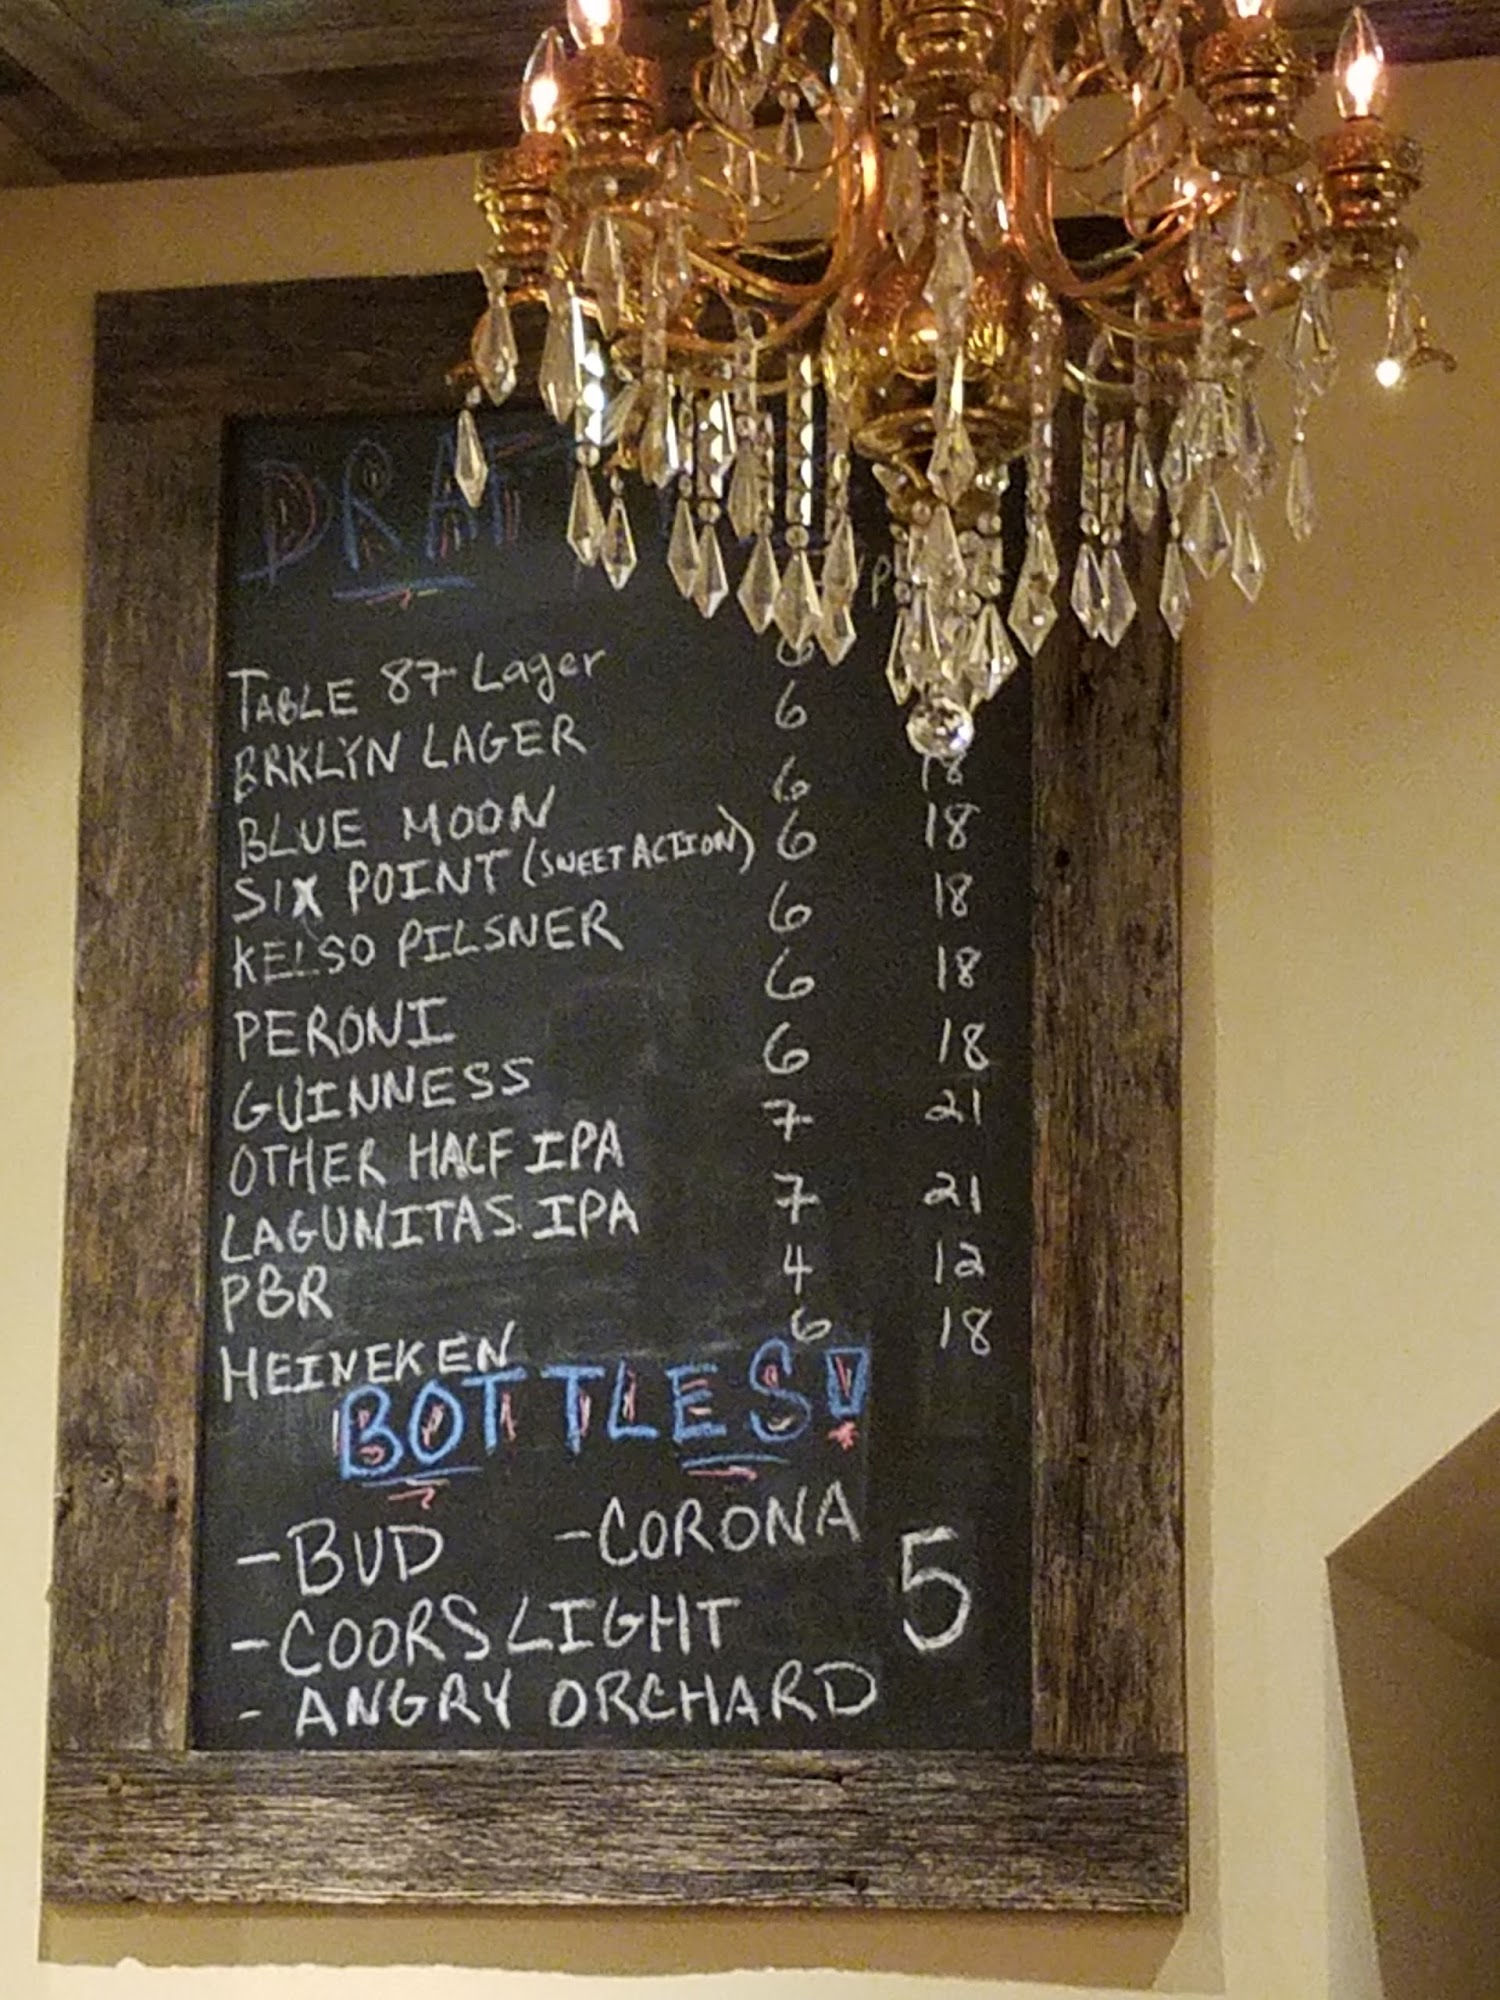 DRAFT
TABLE 87 Lager 6
BRKLYN LAGER 6
BLUE MOON 6 18
SIX POINT (SWEET ACTION) 6 18
KELSO PILSNER 6 18
PERONI 6 18
GUINNESS 6 18
OTHER HALF IPA 7 21
LAGUNITAS IPA 7 21
PBR 4 12
HEINEKEN 6 18
BOTTLES!
- BUD - CORONA
- COORS LIGHT 5
- ANGRY ORCHARD